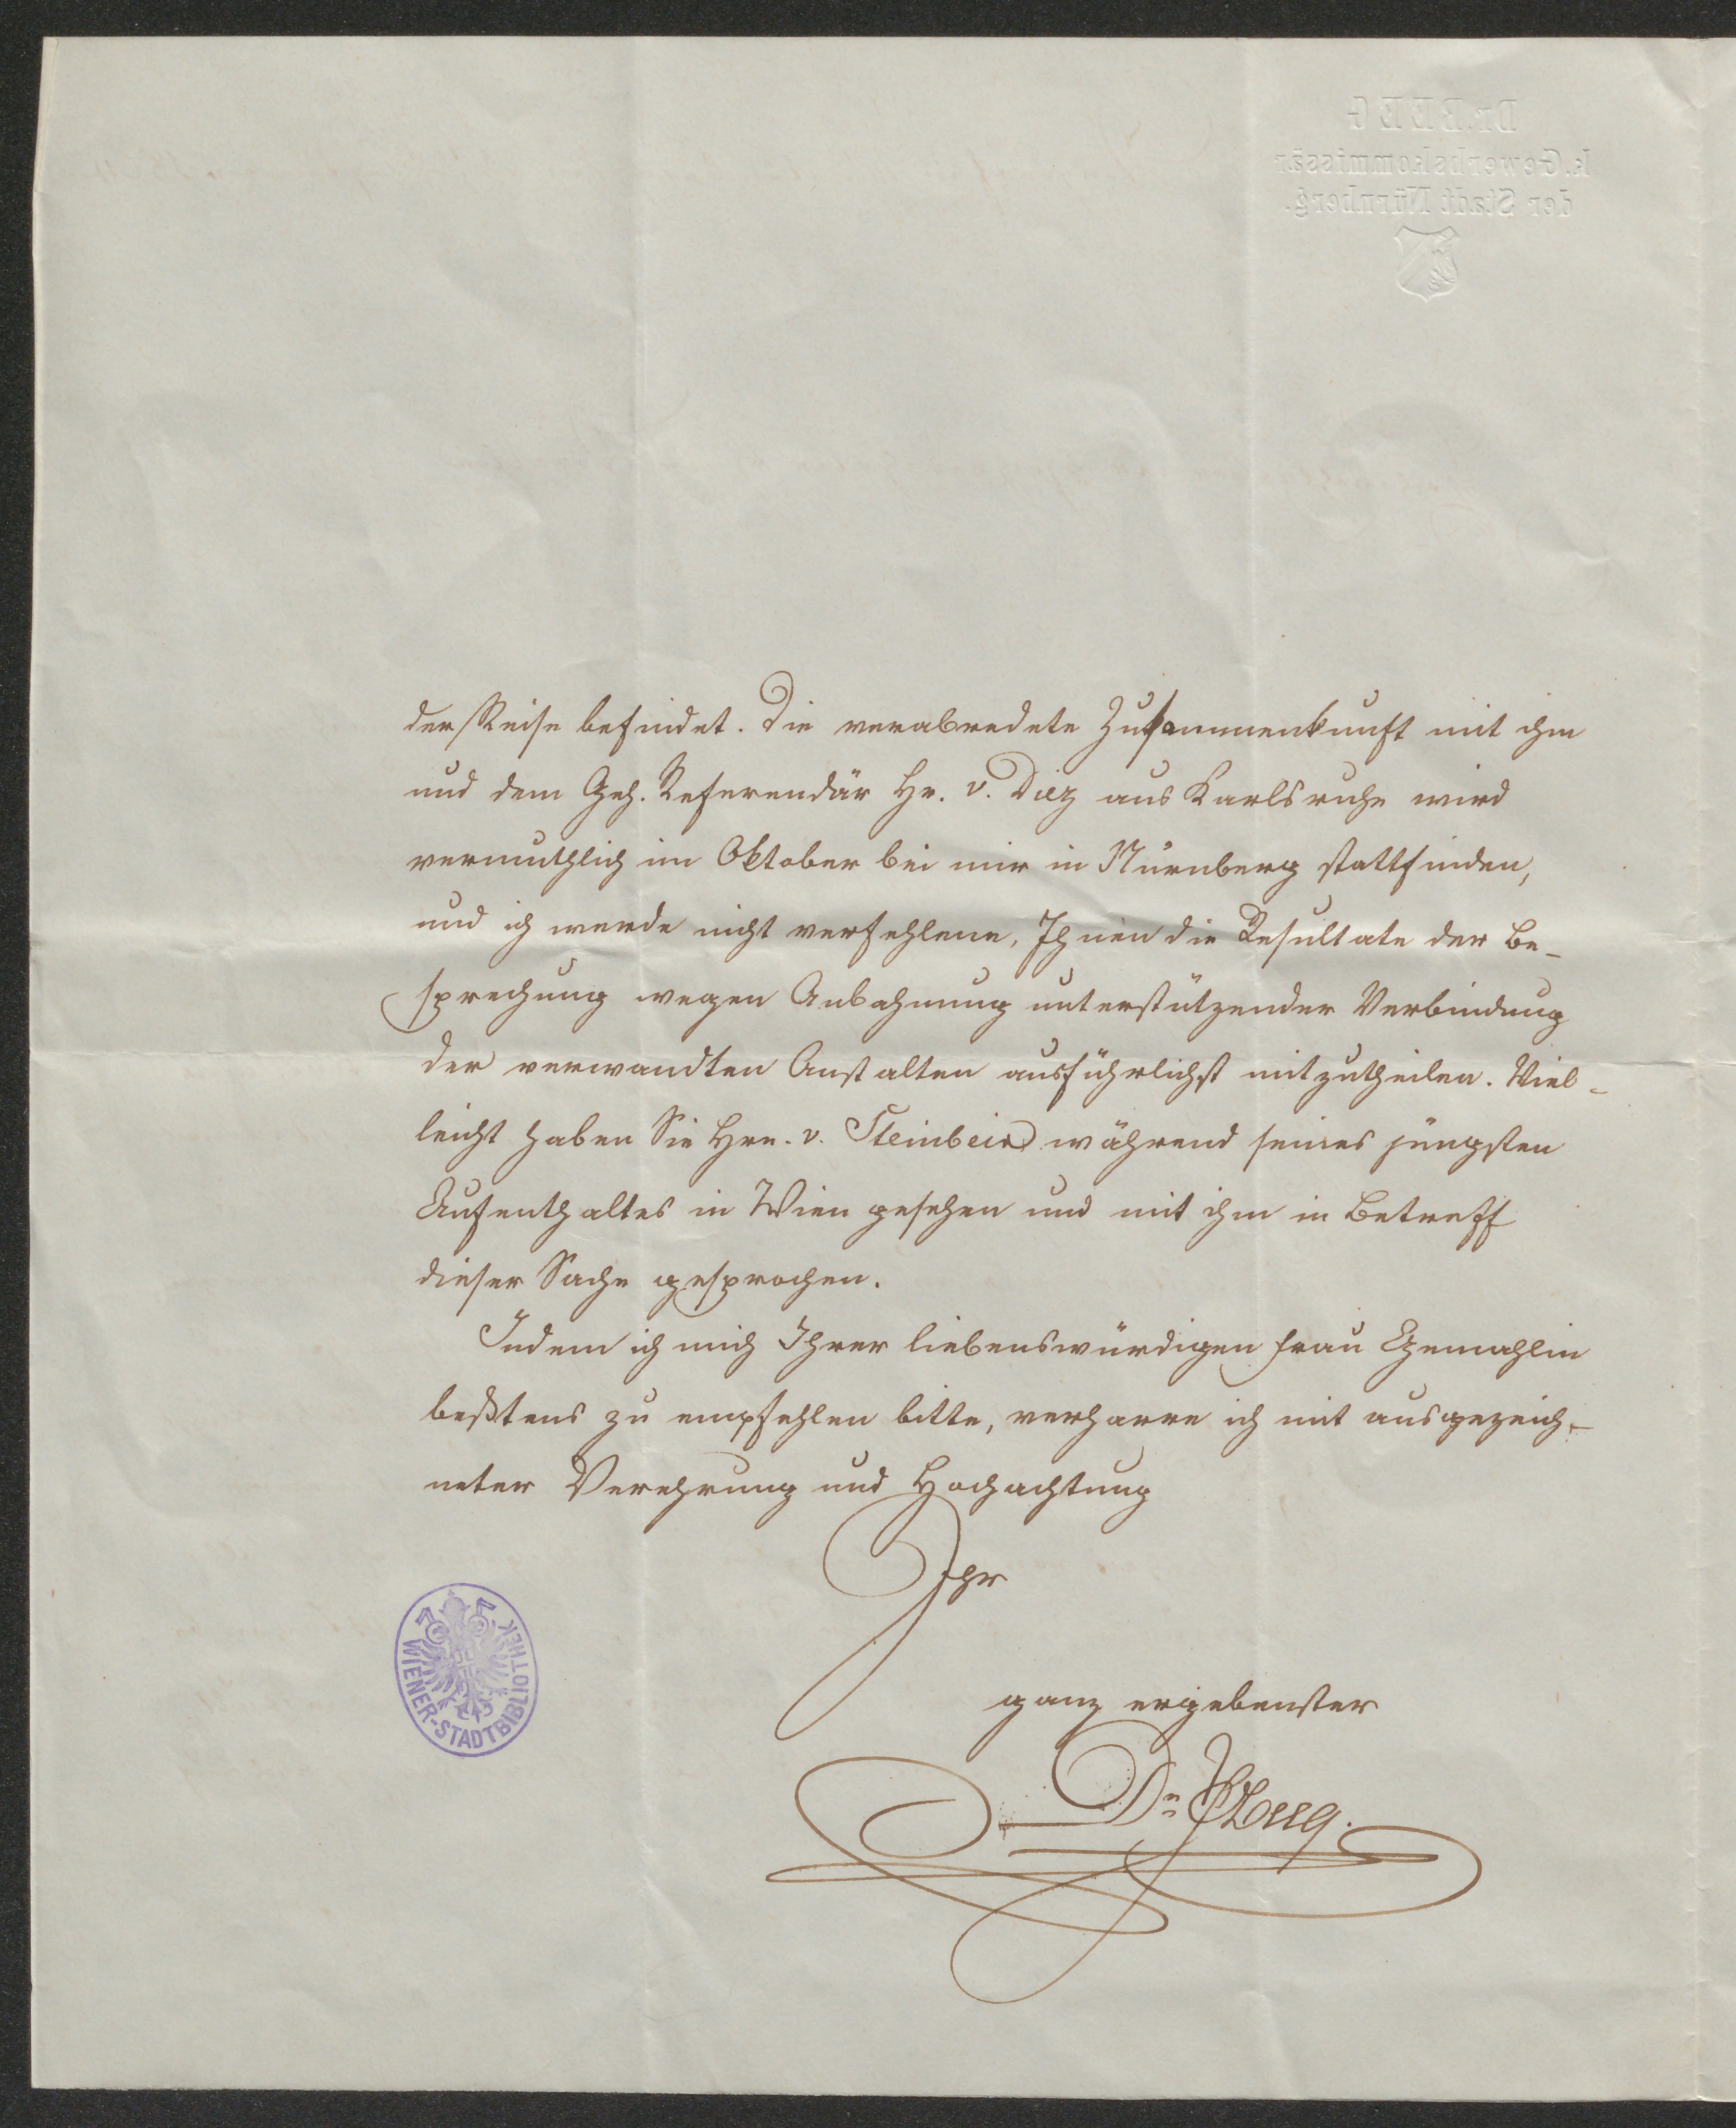 Dr. BEEG
k. Gewerbskommissär
der Stadt Nürnberg.
der Reise befindet. Die verabredete Zusammenkunft mit ihm
und dem Geh. Referendär Hr. v. Diez aus Karlsruhe wird
vermuthlich im Oktober bei mir in Nürnberg stattfinden,
und ich werde nicht verfehlen, Ihnen die Resultate der Be-
sprechung wegen Anbahnung unterstützender Verbindung
der verwandten Anstalten ausführlichst mitzutheilen. Viel-
leicht haben Sie Hrn. v. Steinbeis während seines jüngsten
Aufenthaltes in Wien gesehen und mit ihm in Betreff
dieser Sache gesprochen.
Indem ich mich Ihrer liebenswürdigen Frau Gemahlin
beßtens zu empfehlen bitte, verharre ich mit ausgezeich-
neter Verehrung und Hochachtung
Ihr
ganz ergebenster
Dr. Beeg.
WIENER-STADTBIBLIOTHEK